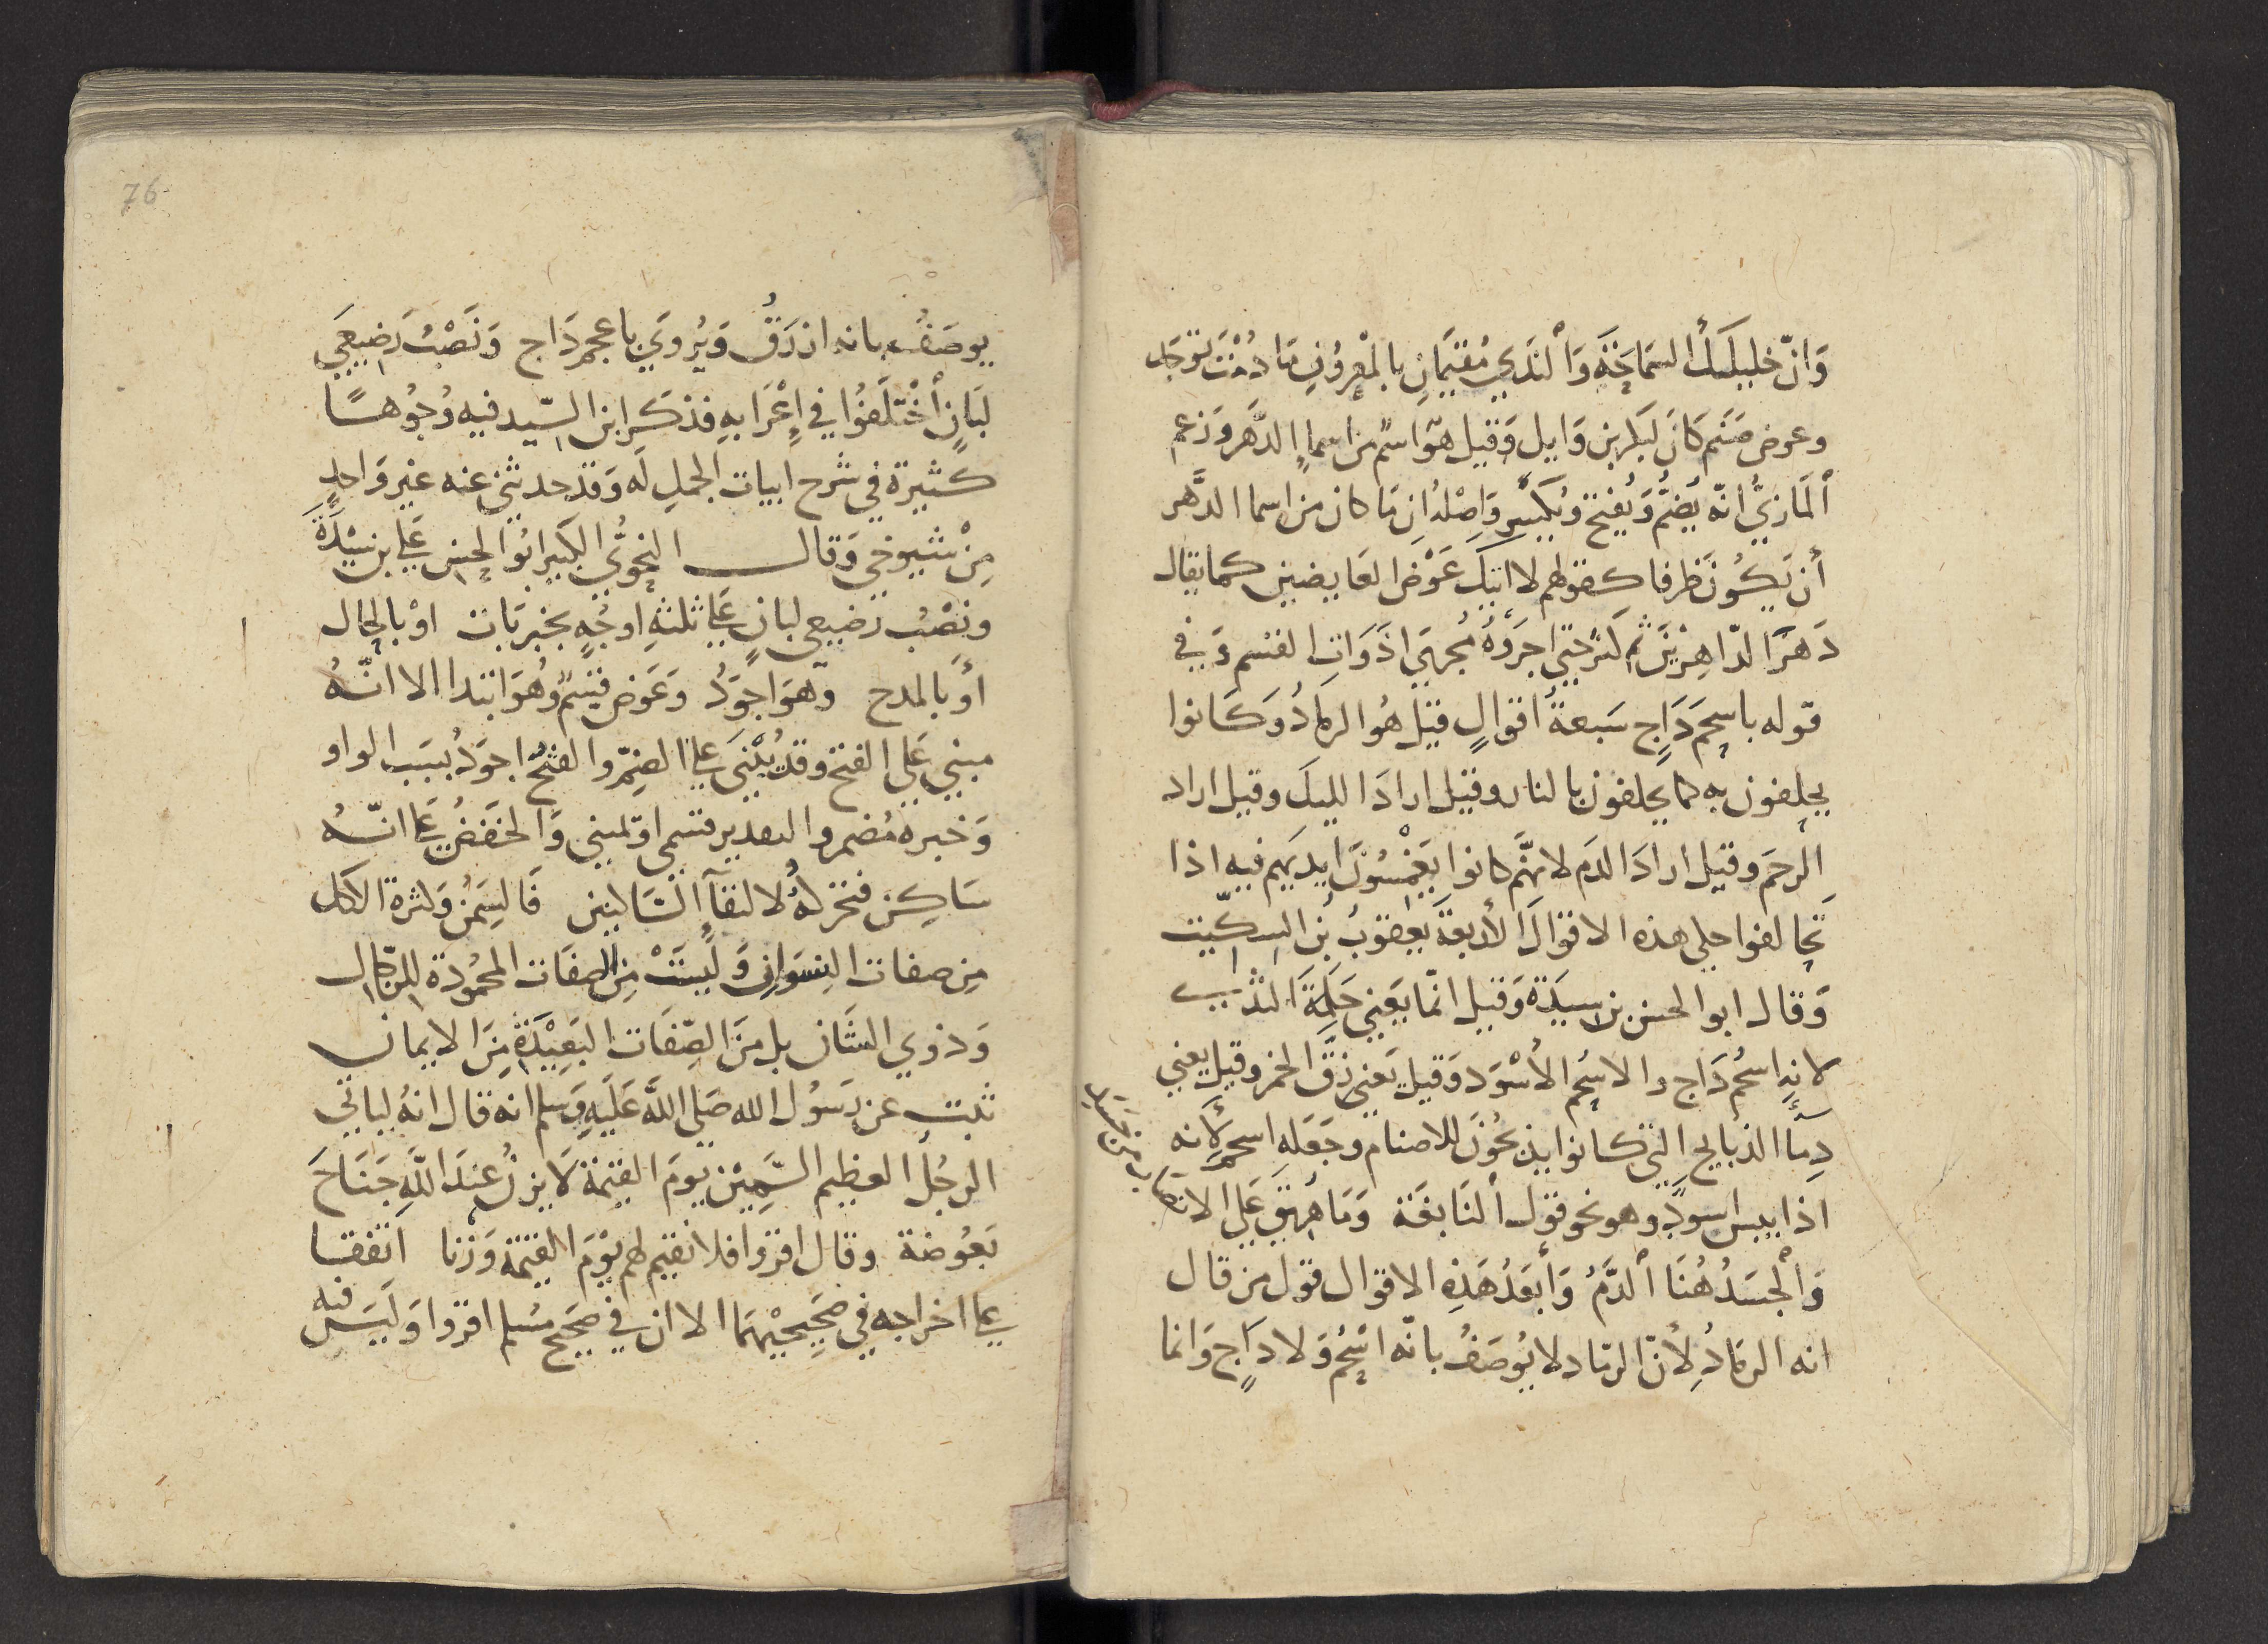 وَانّ خليلَيكَ السَمَاحَةَ وَٱلنَدَي مُقيمَانِ بالمعْرُوفِ مَا دُمْتَ توجَد
وعوض صَنَم كَانَ لبَكر بن وَايل وَقيل هوَ اسم من اسمآءِ الدَّهَر وَزعم
ٱلمَازنيُّ انّه يُضَمُّ وَيُفتح وَيُكسَر وَاصْلهُ ان مَا كان من اسما الدَّهر
أن يَكُونَ ظرفا كقولهم لا اتيك عَوْضَ العَايضين كما يقال
دَهرَ الدّاهِرينَ ثم كثر حتي اجرَوْهُ مُجرَي اذَوَاتِ القسَم وَ في
قوله باسحَم دَاجٍ سَبعةُ اقوالٍ قيل هُو الرمَادُ وَكَانوا
يحلفون به كما يحلفون بالنار وقيل ارادَ الليلَ وقيل اراد
الرحمَ وقيل ارادَ الدَم لانهَّم كانوا يَغمْسُونَ ايديهم فيه اذا
تحَالفوا حلي هذه الاقوالَ الأربعَة يعقوبُ بْن السكّيت
وَقال ابو الحسن بن سيدَة وَقيل انمّا يَعني حَلمَةَ الثَدْيِ
لانهِ اسحُم دَاج والاسُحم الأسْوَد وَقيل يَعني زقَّ الخمر وقيل يعني
دِمَآ الذبايح التي كانوا يذبحُونَ للاصنام وجَعَله اسحم لِأنه
اذا يبس اسودَّ وهو نحو قول ٱلنَابغَة وَمَا هُريق عَلي الانصَاب من جَسَدِ
وَٱلجسَدُ هُنَا ٱلدَّمُ وَأبعَدُ هَذِه الاقوال قول من قال
انه الرمَادُ لأنّ الرمَاد لا يُوصَفُ بانّه اسْحُم وَلا دَاجٍ وَانما
76
يوصَفُ بانه ازرَقُ وَيُروي باعجم دَاج وَنَصْبُ رَضيعَي
لبَانٍ ٱخْتَلَفُوا في إعْرَابهِ فذكَر ابن السّيد فيه وُجُوهًا
كثيَرة في شرح ابيات الجمل لَه وَقد حدثني عنه غير وَاحدٍ
مِنْ شيوخي وَقال النحويُّ الكبير ابُو الحسن عَلي بن سيْدَةَ
ونصْبُ رضيعي لبانٍ عَلي ثلثةِ اوجُهٍ بخبر بَات اوْ بالحال
أوْ بالمدح وَهوَ اجوَدُ وَعَوض قسَمٌ وهُوَ ابتدا الا انّهُ
مبني عَلي الفتح وقد يُبْنَي علي الضمّ والفتحُ اجوَدُ بسَبَب الواو
وَخبره مُضمر والتقدير قسمي او يميني وَالخفضُ علي انّهُ
سَاكِن فتحرّك لالتقآءِ السَّاكنين فَالسِمَنُ وكثرة الاكل
مِن صفات النِسوَانِ وَلَيسَتْ مِن الصفَات المحمُودة للرجَال
وَذوي الشَان بل مِنَ الصِّفَات البَعِيْدَةِ مِنَ الايمان
ثبت عن رَسُول الله صَلى اللَّه عَلَيهِ وَسلم انه قال انهُ لياتي
الرجُل العظيم السَّمِيْن يومَ القيمَة لا يزنُ عندَ اللَّه جَنَاحَ
بَعُوضَة وقال اقروا فلا نقيم لهم يوْمَ القيمة وَزنا اتفقا
علي اخراجه في صَحِيحيْهمَا الا ان في صحَيح مسُلم اقروا وَليسَ فيه